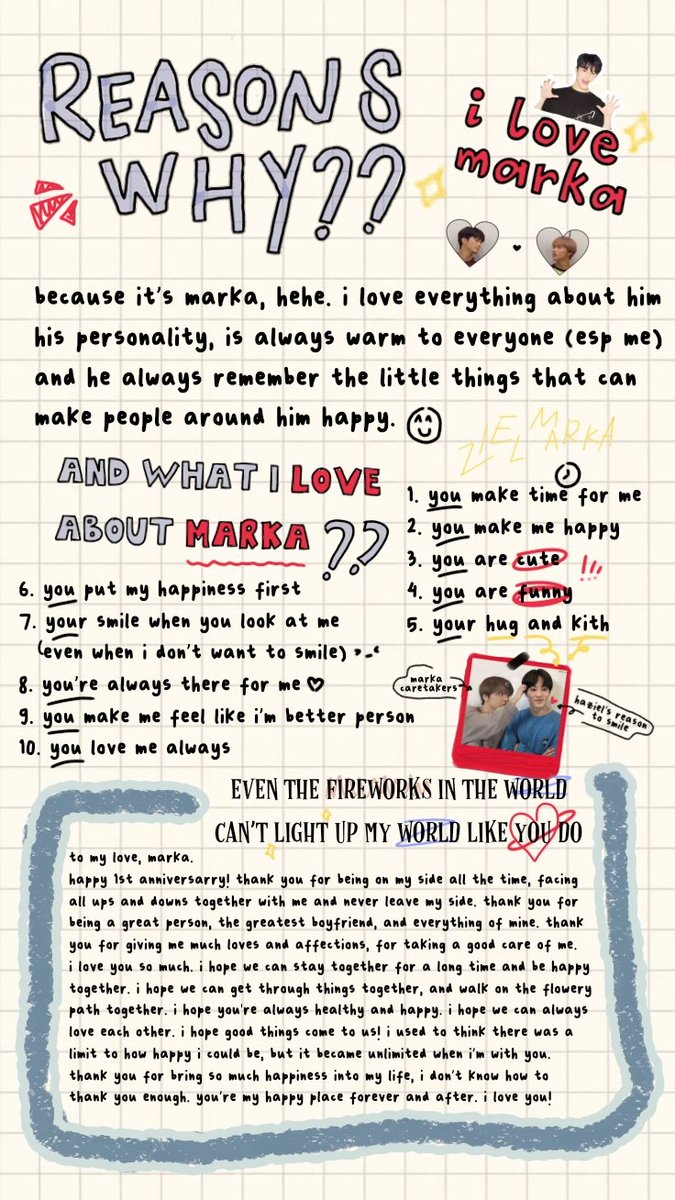 REASONS
WHY??
i love
marka
because it's marka, hehe. i love everything about him
his personality, is always warm to everyone (esp me)
and he always remember the little things that can
make people around him happy.
ZIEL MARKA
AND WHAT I LOVE
ABOUT MARKA ??
1. you make time for me
2. you make me happy
3. you are cute
!!!
4. you are funny
5. your hug and kith
6. you put my happiness first
7. your smile when you look at me
(even when i don't want to smile) >_<
8. you're always there for me♡
9. you make me feel like i'm better person
10. you love me always
marka
caretakers
haziel's reason
to smile
EVEN THE FIREWORKS IN THE WORLD
CAN'T LIGHT UP MY WORLD LIKE YOU DO
to my love, marka.
happy 1st anniversarry! thank you for being on my side all the time, facing
all ups and downs together with me and never leave my side. thank you for
being a great person, the greatest boyfriend, and everything of mine. thank
you for giving me much loves and affections, for taking a good care of me.
i love you so much. i hope we can stay together for a long time and be happy
together. i hope we can get through things together, and walk on the flowery
path together. i hope you're always healthy and happy. i hope we can always
love each other. i hope good things come to us! i used to think there was a
limit to how happy i could be, but it became unlimited when i'm with you.
thank you for bring so much happiness into my life, i don't know how to
thank you enough. you're my happy place forever and after. i love you!